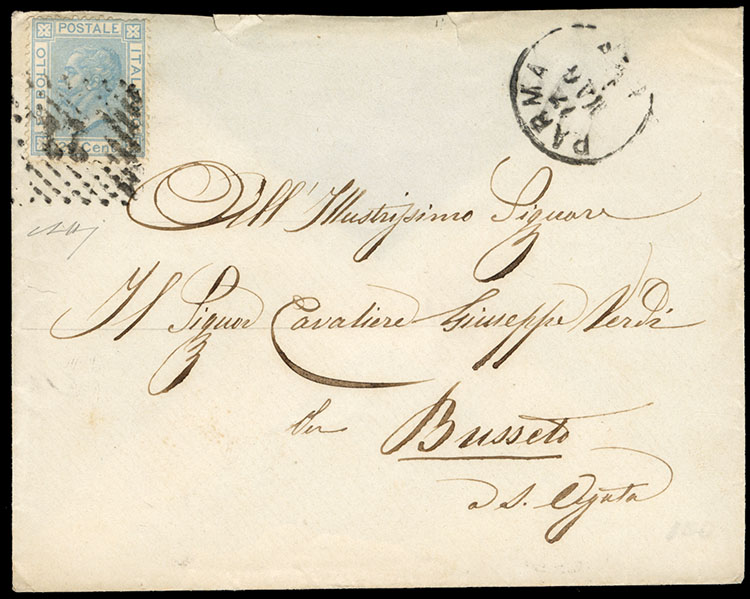 POSTALE
BOLLO
ITAL
20 Cent
PARMA
MAG
All' Illustrissimo Signore
Il Signor Cavaliere Giuseppe Verdi
Per Busseto
a S. Agata